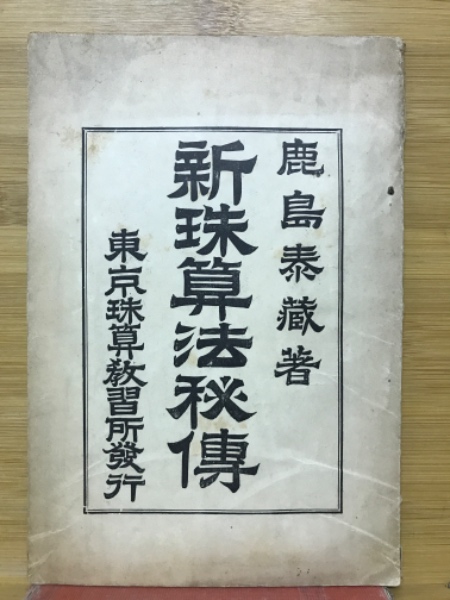 鹿島泰藏著
新珠算法秘傳
東京珠算教習所發行